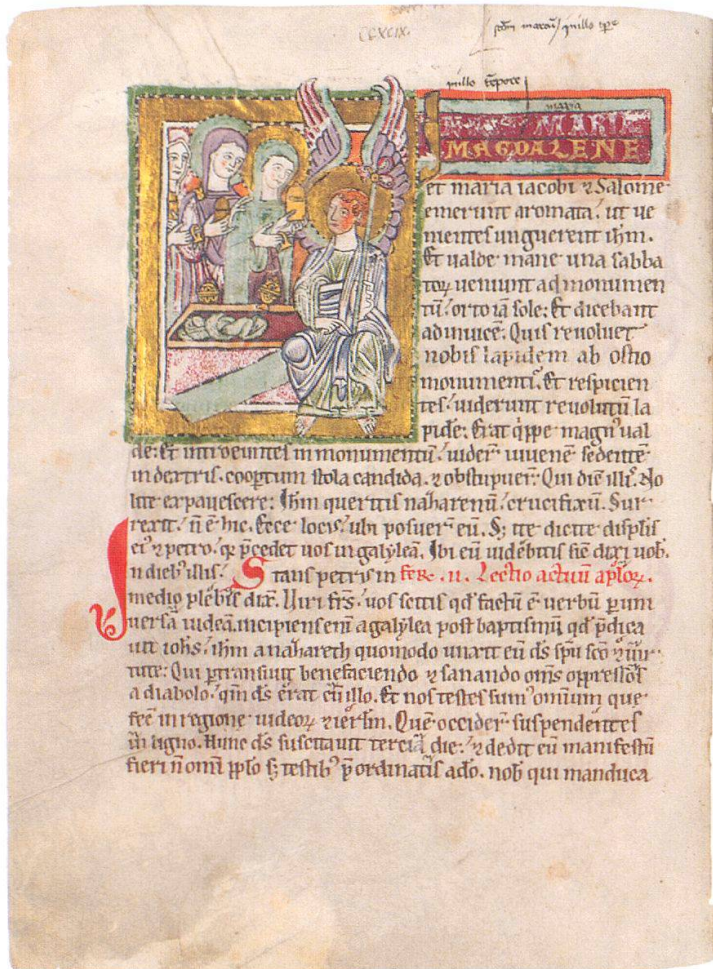 CCXCIX.
scdm marcu͞ / ī illo tp̄e
ī illo tēpore
maria
MARIA
MAGDALENE
et maria iacobi ⁊ Salome
emerunt aromata. ut ue
nientes unguerent ihm.
Et ualde mane una sabba
toꝝ ueniunt ad monumen
tū. orto iā sole. Et dicebant
adinuicē. Quis reuoluet
nobis lapidem ab ostio
monumenti. Et respicien
tes. uiderunt reuolutū la
pidē. Erat q̇ppe magn᷒ ual
de. Et introeuntes in monumentū. uider̄ iuuenē sedentē
in dextris. coopertum stola candida. ⁊ obstupuer̄. Qui dic̄ illis. No
lite expauescere. Ihm queritis nazarenū. crucifixū. Sur
rexit. n̄ ē hic. Ecce locus. ubi posuer̄ eū. S; ite dicite discplis
ei᷒ ⁊ petro. qꝫ p̄cedet uos in galylea. Ibi eū uidebitis sic̄ dixi uob.
In dieb᷒ illis. Stans petrus in fer. .ii. Lectio actuū aplōꝝ.
medio plebis dix̄. Uiri frs̄. uos scitis qd̄ factū ē uerbū ꝑ uni
uersā iudeā. incipiens enī a galylea post baptismū qd̄ p̄dica
uit iohs̄. ihm a nazareth quomodo unxit eū ds̄ spū scō ⁊ uir
tute. Qui ꝑtransiuit benefaciendo ⁊ sanando om̄s oppressos
a diabolo. qm̄ ds̄ erat cū illo. Et nos testes sum᷒ omnium que
fec̄ in regione iudeoꝝ ⁊ ierl̄m. Quē occider̄ suspendentes
in ligno. Hunc ds̄ suscitauit tercia die. ⁊ dedit eū manifestū
fieri n̄ omī pplo s; testib᷒ p̄ordinatis a dō. nob qui manduca